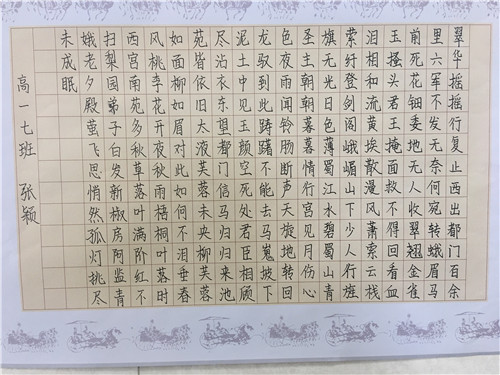 翠华摇摇行复止西出都门百余
里六军不发无奈何宛转蛾眉马
前死花钿委地无人收翠翘金雀
玉搔头君王掩面救不得回看血
泪相和流黄埃散漫风萧索云栈
萦纡登剑阁峨嵋山下少人行旌
旗无光日色薄蜀江水碧蜀山青
圣主朝朝暮暮情行宫见月伤心
色夜雨闻铃肠断声天旋地转回
龙驭到此踌躇不能去马嵬坡下
泥土中见玉颜空死处君臣相顾
尽沾衣东望都门信马归归来池
苑皆依旧太液芙蓉未央柳芙蓉
如面柳如眉对此如何不泪垂春
风桃李花开夜秋雨梧桐叶落时
西宫南苑多秋草落叶满阶红不
扫梨园弟子白发新椒房阿监青
娥老夕殿萤飞思悄然孤灯挑尽
未成眠
高一七班 张颖